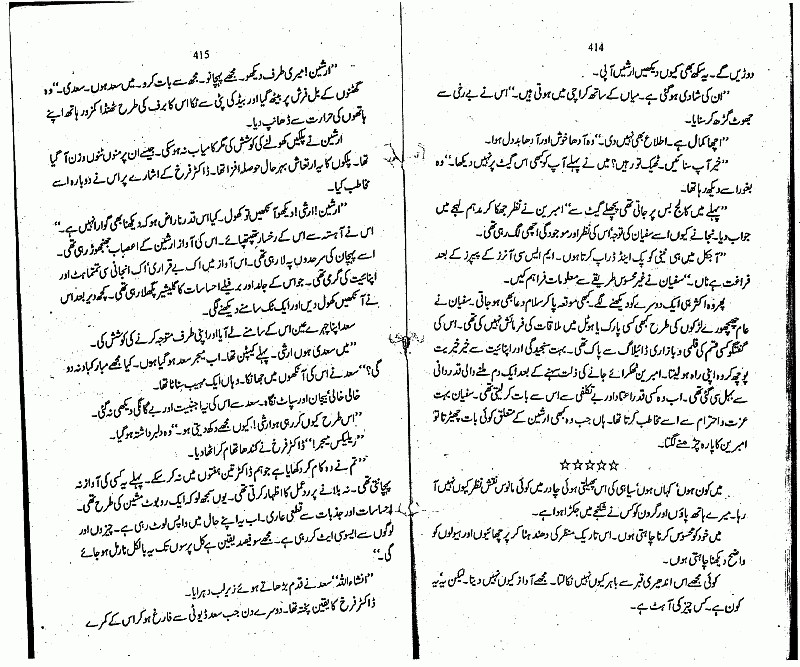 414
دوڑیں گے۔ یہ سکھ بھی کیوں دیکھیں ارشین آپی۔
”ان کی شادی ہو گئی ہے۔ میاں کے ساتھ کراچی میں ہوتی ہیں۔“ اس نے بے رخی سے
جھوٹ گڑھ کر سنایا۔
”اچھا کمال ہے۔ اطلاع بھی نہیں دی۔“ وہ آدھا خوش اور آدھا بددل ہوا۔
”خیر آپ سنائیں۔ ٹھیک تو رہیں؟ میں نے پہلے آپ کو کبھی اس گیٹ پر نہیں دیکھا۔“ وہ
بغور اسے دیکھ رہا تھا۔
”پہلے میں کالج بس پر جاتی تھی پچھلے گیٹ سے“ امبرین نے نظر جھکا کر مدہم لہجے میں
جواب دیا۔ نجانے کیوں اسے سفیان کی توجہ اس کی نظر اور موجودگی اچھی لگ رہی تھی۔
”آجکل میں ہی نینی کو پک اینڈ ڈراپ کرتا ہوں۔ ایم ایس سی آنرز کے پیپرز کے بعد
فراغت ہے ناں۔“ سفیان نے غیر محسوس طریقے سے معلومات فراہم کیں۔
پھر وہ اکثر ہی ایک دوسرے کو دیکھنے لگے۔ کبھی موقعہ پا کر سلام دعا بھی ہو جاتی۔ سفیان نے
عام چھچھورے لڑکوں کی طرح کبھی کسی پارک یا ہوٹل میں ملاقات کی فرمائش نہیں کی تھی۔ اس کی
گفتگو کسی قسم کی فلمی و بازاری ڈائیلاگ سے پاک تھی۔ بہت سنجیدگی اور اپنائیت سے خیر خیریت
پوچھ کر وہ اپنی راہ ہو لیتا۔ امبرین ٹھکرائے جانے کی ذلت سہنے کے بعد ایک دم ملنے والی قدردانی
سے بہل سی گئی تھی۔ اب وہ کسی قدر اعتماد اور بے تکلفی سے اس سے بات کر لیتی تھی۔ سفیان بہت
عزت و احترام سے اسے مخاطب کرتا تھا۔ ہاں جب وہ کبھی ارشین کے متعلق کوئی بات چھیڑتا تو
امبرین کا پارہ چڑھنے لگتا۔
☆☆☆☆☆
میں کون ہوں‘ کہاں ہوں‘ سیاہی کی اس پھیلتی ہوئی چادر میں کوئی مانوس نقش نظر کیوں نہیں آ
رہا۔ میرے ہاتھ پاؤں اور گردن کو کس نے شکنجے میں جکڑا ہوا ہے۔
میں خود کو محسوس کرنا چاہتی ہوں۔ اس تاریک منظر کی دھند ہٹا کر پرچھائیوں اور ہیولوں کو
واضح دیکھنا چاہتی ہوں۔
کوئی مجھے اس اندھیری قبر سے باہر کیوں نہیں نکالتا۔ مجھے آواز کیوں نہیں دیتا۔ لیکن یہ‘ یہ
کون ہے۔ کس چیز کی آہٹ ہے۔
415
”ارشین! میری طرف دیکھو۔ مجھے پہچانو۔ مجھ سے بات کرو۔ میں سعد ہوں۔ سعدی۔“ وہ
گھٹنوں کے بل فرش پر بیٹھ گیا اور بیڈ کی پٹی سے نکا اس کا برف کی طرح ٹھنڈا کمزور ہاتھ اپنے
ہاتھوں کی حرارت سے ڈھانپ دیا۔
ارشین نے پلکیں کھولنے کی کوشش کی مگر کامیاب نہ ہو سکی۔ جیسے ان پر منوں ٹنوں وزن آ گیا
تھا۔ پلکوں کا یہ ارتعاش بہرحال حوصلہ افزا تھا۔ ڈاکٹر فرخ کے اشارے پر اس نے دوبارہ اسے
مخاطب کیا۔
”ارشین! ارشی! دیکھو آنکھیں تو کھول۔ کیا اس قدر ناراض ہو کہ دیکھنا بھی گوارا نہیں ہے۔“
اس نے آہستہ سے اس کے رخسار تھپتھپائے۔ اس کی آواز ارشین کے اعصاب جھنجھوڑ رہی تھی۔
اسے پہچان کی سرحدوں پہ لا رہی تھی۔ اس آواز میں اک بے قراری‘ اک انجانی سی تمتماہٹ اور
اپنائیت کی گرمی تھی۔ جو اس کے جامد اور برفیلے احساسات کا گلیشیر پگھلا رہی تھی۔ کچھ دیر بعد اس
نے آنکھیں کھول دیں اور ایک ٹک سامنے دیکھنے لگی۔
سعد اپنا چہرے عین اس کے سامنے لے آیا اور اپنی طرف متوجہ کرنے کی کوشش کی۔
”میں سعدی ہوں ارشی۔ پہلے کیپٹن تھا۔ اب میجر سعد ہو گیا ہوں۔ کیا مجھے مبارکباد نہ دو
گی؟“ سعد نے اس کی آنکھوں میں جھانکا۔ وہاں ایک مہیب سناٹا تھا۔
خالی خالی ہیجان اور سپاٹ نگاہ۔ سعد سے اس کی نیا جنبیت اور بے گانگی دیکھی نہ گئی۔
”اس طرح کیوں کر رہی ہو ارشی! کیوں مجھے دکھ دیتی ہو۔“ وہ دلبرداشتہ ہو گیا۔
”ریلیکس میجر!“ ڈاکٹر فرخ نے کندھا تھام کر اٹھا دیا۔
”تم نے وہ کام کر دکھایا ہے جو ہم ڈاکٹر تین ہفتوں میں نہ کر سکے۔ پہلے یہ کسی کی آواز نہ
پہچانتی تھی۔ نہ بلانے پر ردعمل کا اظہار کرتی تھی۔ یوں سمجھ لو کہ ایک روبوٹ مشین کی طرح تھی۔
احساسات اور جذبات سے قطعی عاری۔ اب یہ اپنے حال میں واپس لوٹ رہی ہے۔ چیزوں اور
لوگوں سے ایسوسی ایٹ کر رہی ہے۔ مجھے سو فیصد یقین ہے کل پرسوں تک یہ بالکل نارمل ہو جائے
گی۔“
”انشاءاللہ“ سعد نے قدم بڑھاتے ہوئے زیر لب دہرایا۔
ڈاکٹر فرخ کا یقین پختہ تھا۔ دوسرے دن جب سعد ڈیوٹی سے فارغ ہو کر اس کے کمرے